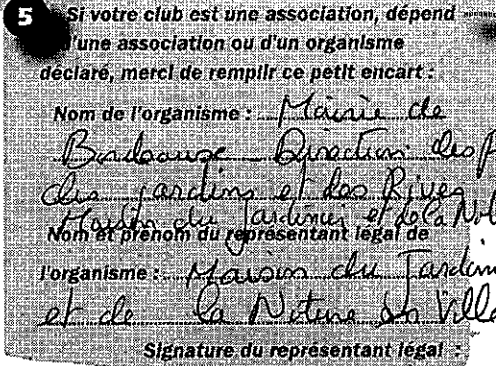 5 Si votre club est une association, dépend
d'une association ou d'un organisme
déclaré, merci de remplir ce petit encart :
Nom de l'organisme : Mairie de
Bordeaux Direction des P
des jardins et des Rives
Maison du Jardinier et de la Nat
Nom et prénom du représentant légal de
l'organisme : Maison du Jardin
et de la Nature en Ville
Signature du représentant légal :